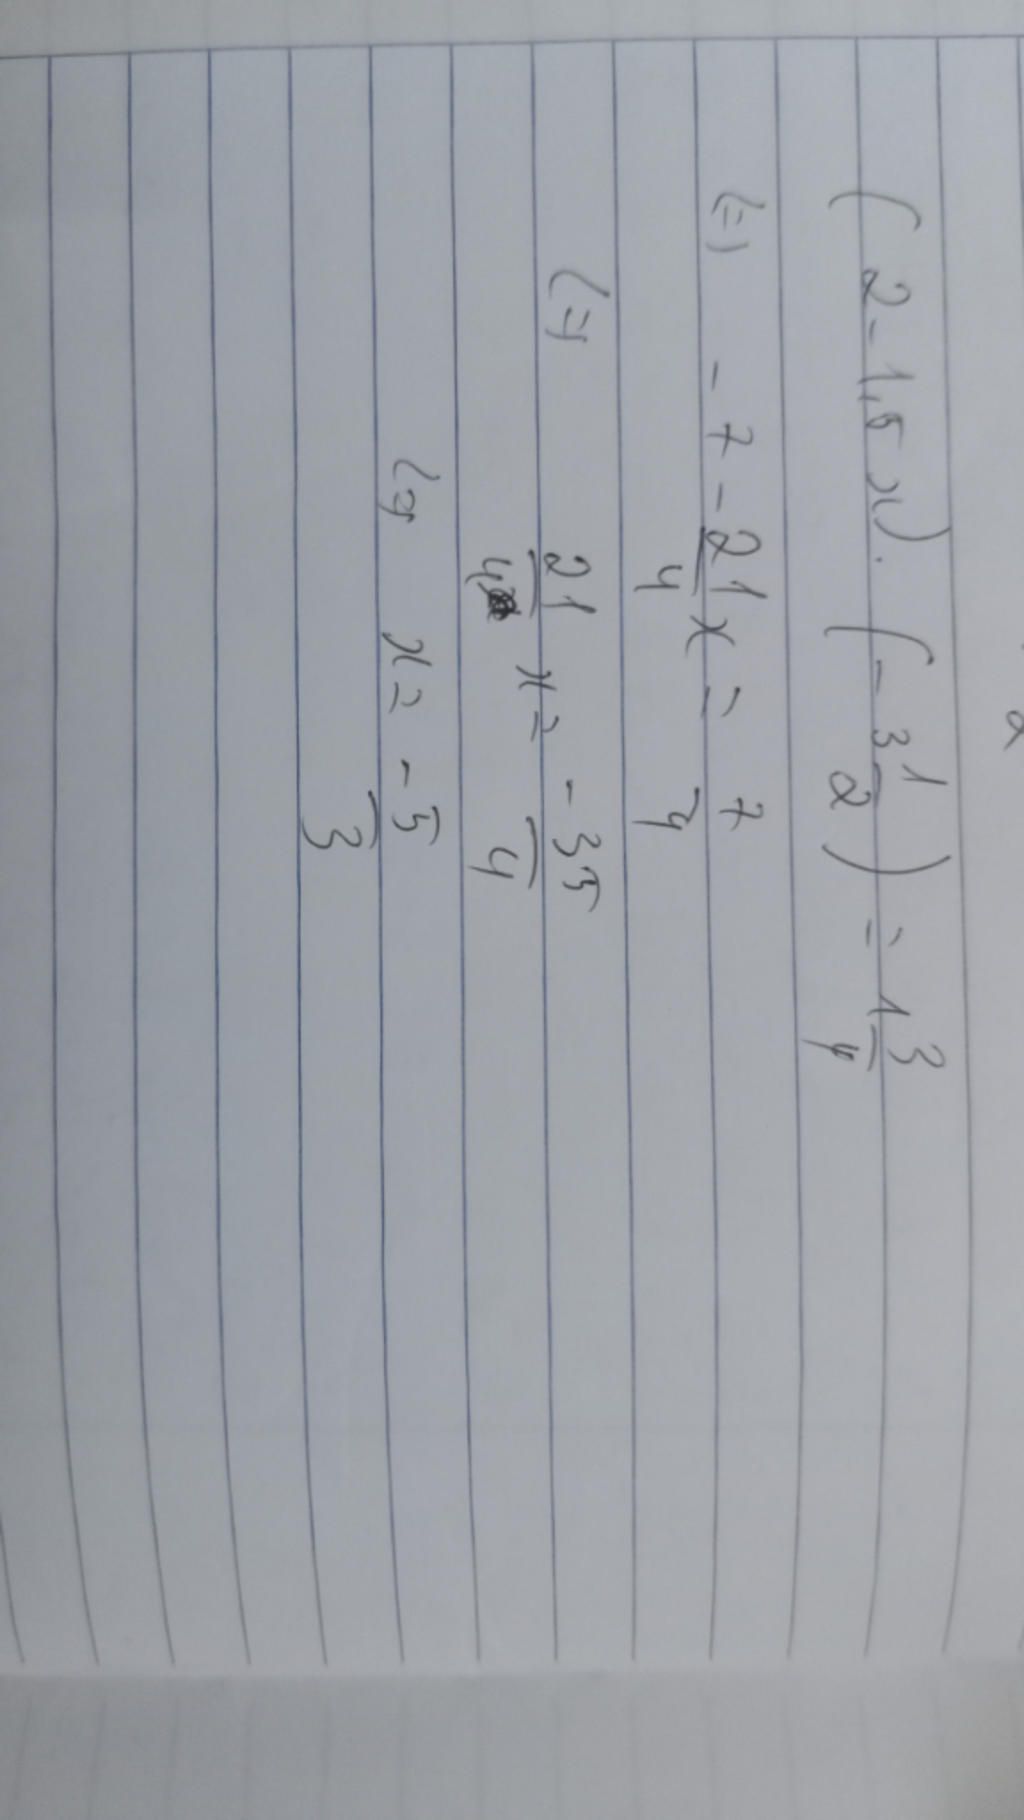 (2-1,5x).(-3 1/2) = 1 3/4
(=) -7 - 21/4 x = 7/4
(=) 21/4 x = -35/4
(=) x = -5/3